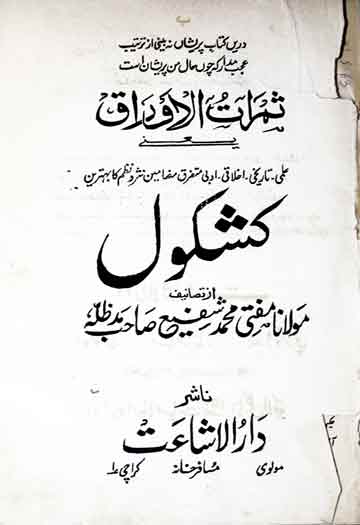 ب
دریں کتاب پریشاں نہ بینی از ترتیب
عجب مدار کہ چوں حال من پریشان است
ثمرات الاوراق
یعنی
علمی - تاریخی - اخلاقی - ادبی متفرق مضامین نثر و نظم کا بہترین
کشکول
از تصانیف
مولانا مفتی محمد شفیع صاحب مدظلہ
ناشر
دار الاشاعت
مولوی مسافر خانہ کراچی ۱